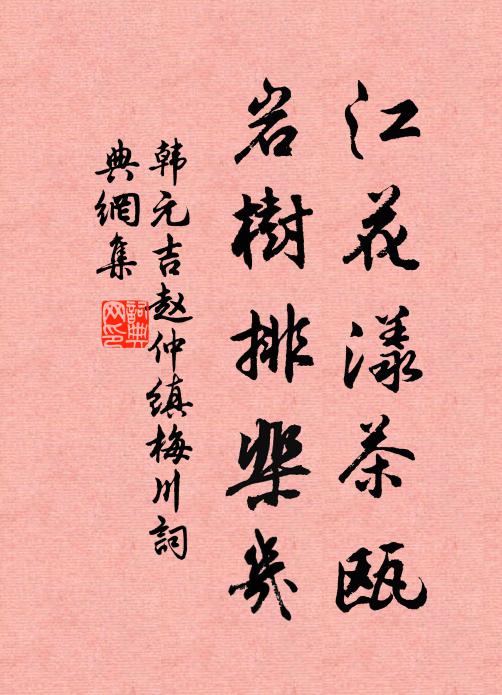 江花漾茶瓯
岩樹排棐幾
韩元吉赵仲缜梅川詞
典網集
詞典网印